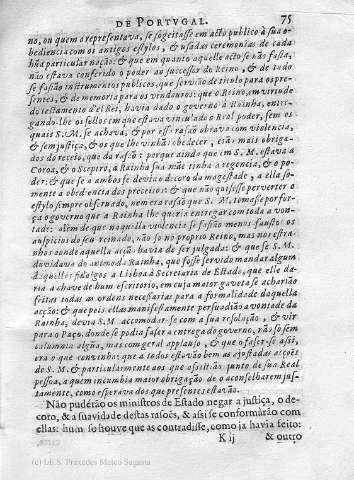 DE PORTVGAL. 75
no, ou quem o representava, se sogeitasse em acto publico à sua o-
bediencia com os antigos estylos, & usadas ceremonias de cada
hũa particular nação: & que em quanto aquelle acto se não fasia,
não estava conferido o poder ao successor do Reino, & de tudo
se fasião instrumentos publicos, que servião de titulo para os pre-
sentes, & de memoria para os vindouros: que o Reino, em virtude
do testamento d'el Rei, havia dado o governo à Rainha, entre-
gando-lhe os sellos em que estava vinculado o Real poder, sem os
quais S. M. se achava, & por essa rasão obrava com violencia,
& sem justiça, & os que lhe vinhão obedecer, erão mais obriga-
dos do receio, que da rasão: porque ainda que em S. M. estava a
Coroa, & o Sceptro, à Rainha sua mãe tinha a regencia, & o po-
der: & que se a ambos se devia o decoro da magestade, a ella so-
mente a obediencia dos preceitos: & que não quisesse perverter o
estylo sempre observado, nem era rasão que S. M. tomasse por for-
ça o governo que a Rainha lhe queria entregar com toda a von-
tade: alem de que naquella violencia se fasião menos faustos os
auspicios do seu reinado, não só no proprio Reino, mas nos estra-
nhos onde aquella acção havia de ser julgada: & que se S. M.
duvidava do animo da Rainha, que fosse servido mandar algum
daquelles fidalgos a Lisboa à Secretaria de Estado, que elle da-
ria a chave de hum escritorio, em cuja maior gaveta se acharião
feitas todas as ordens necessarias para a formalidade daquella
acção: & que pois ellas manifestamente persuadião a vontade da
Rainha, devia S. M. accomodar-se com a sua resolução, & vir
para o Paço, donde se podia faser a entrega do governo, não só sem
calumnia algũa, mas com geral applauso, & que o faser-se assi,
era o que convinha: que a todos estavão bem as ajustadas acções
de S. M. & particularmente aos que assistião junto de sua Real
pessoa, a quem incumbia maior obrigação de o aconselharem jus-
tamente, como esperava dos que presentes estavão.
Não pudérão os ministros de Estado negar a justiça, o de-
coro, & a suavidade destas rasoẽs, & assi se conformàrão com
ellas: hum so houve que as contradisse, como ja havia feito:
K ij & outro
(c) I.E.S. Práxedes Mateo Sagasta